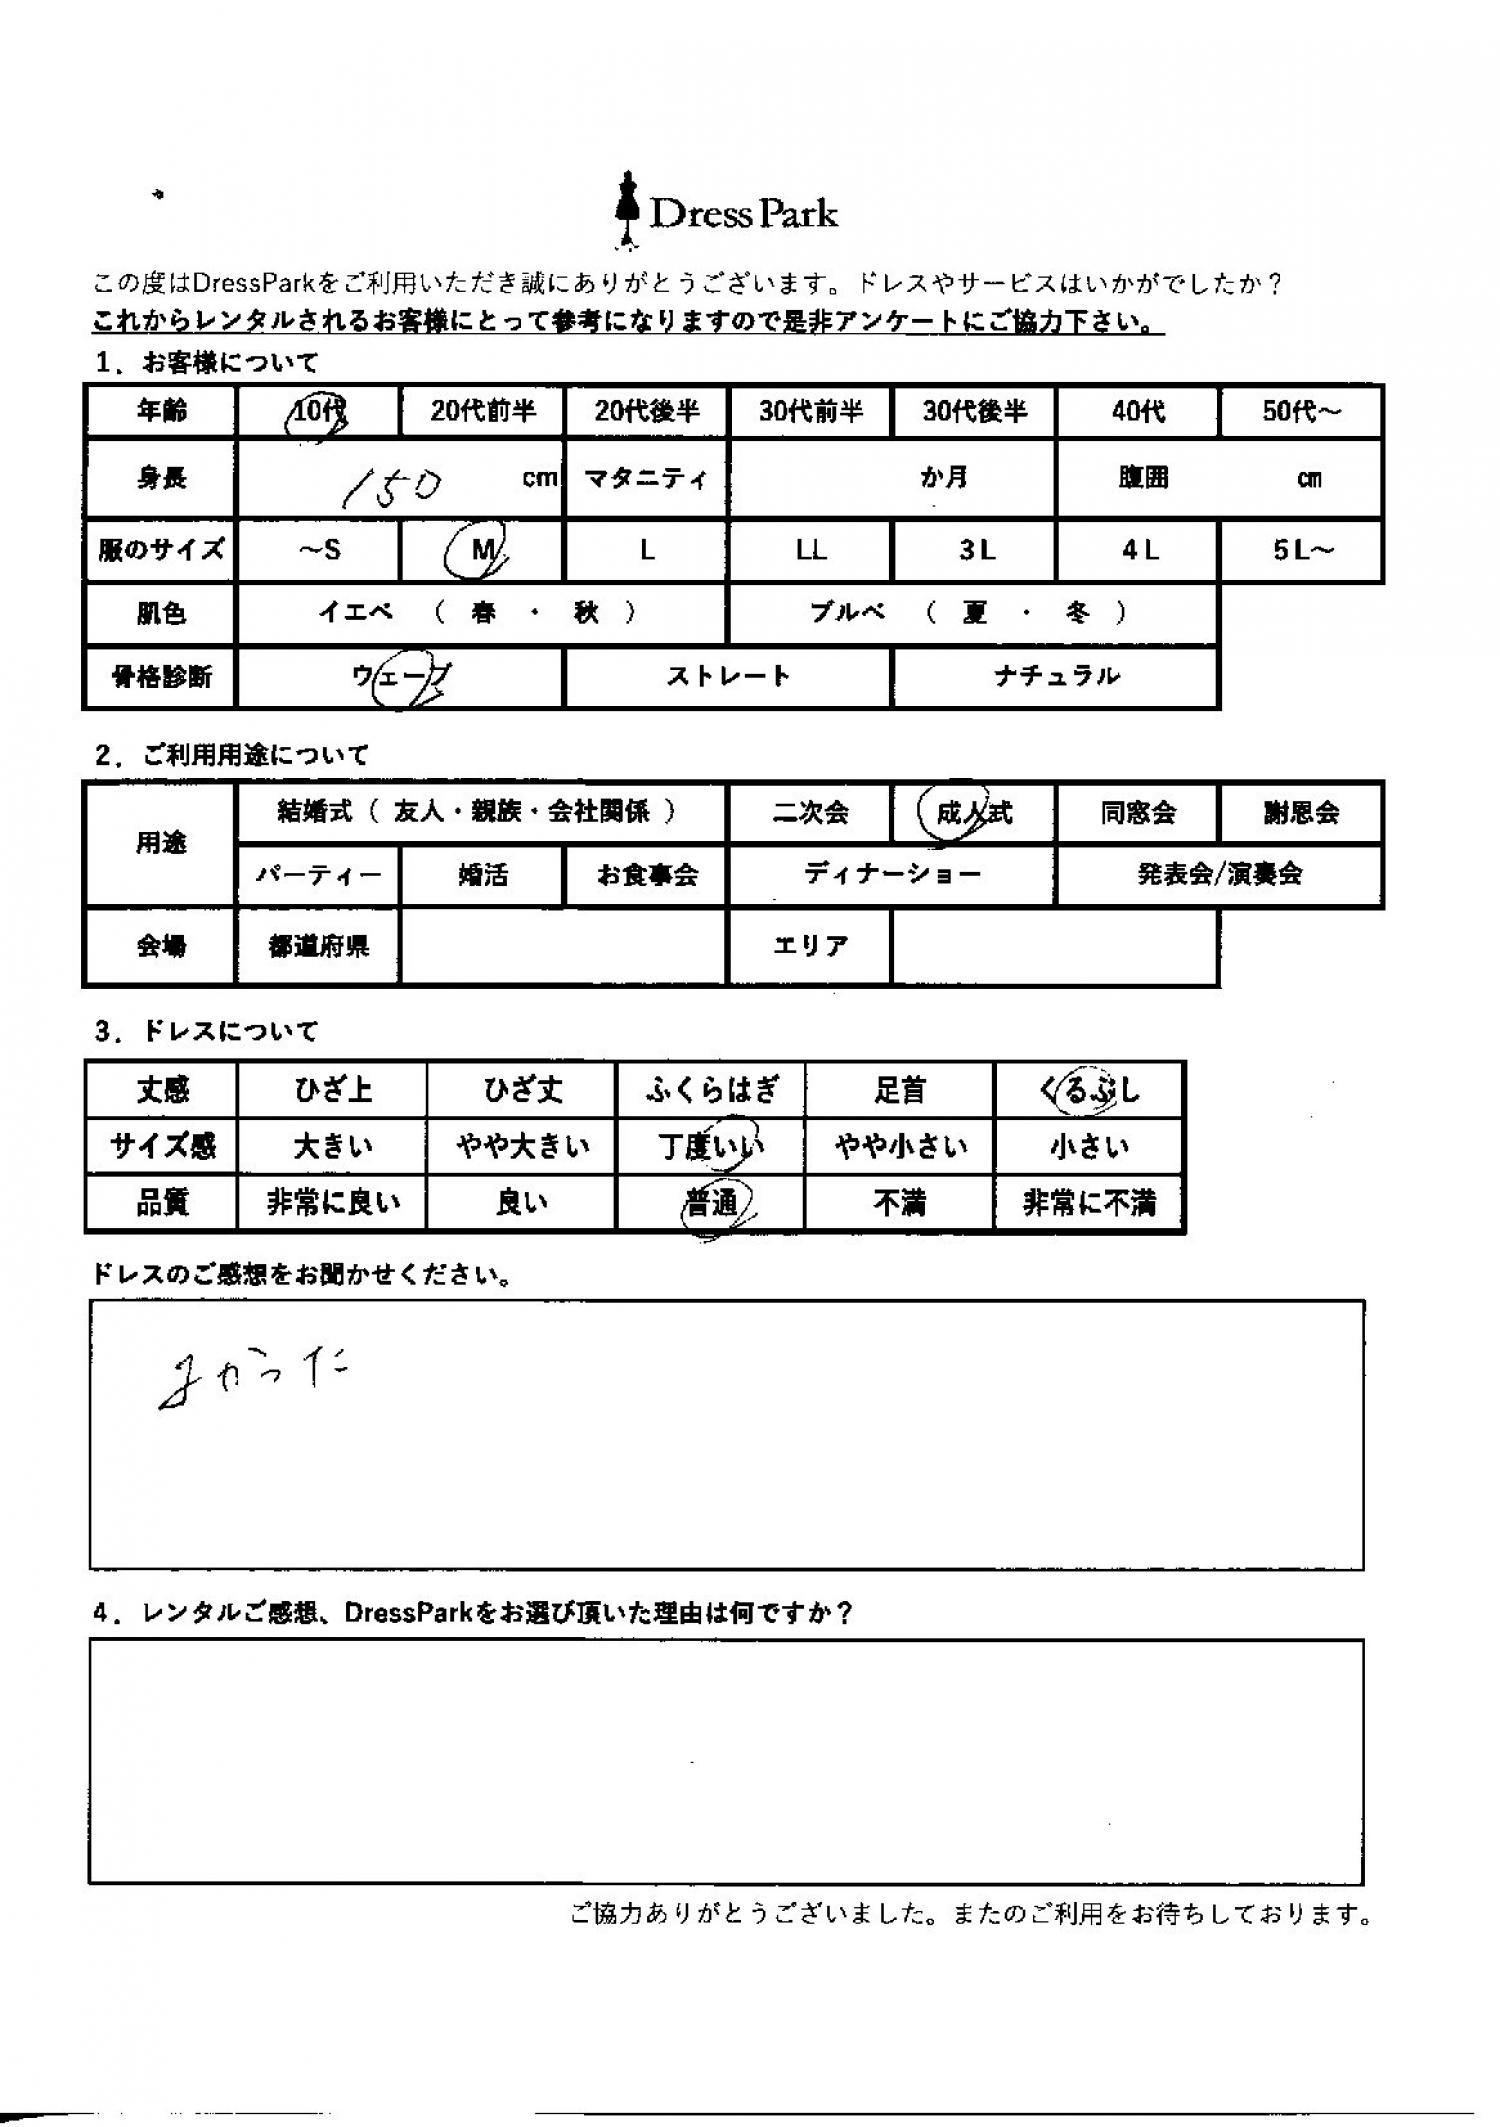 Dress Park
この度はDressParkをご利用いただき誠にありがとうございます。ドレスやサービスはいかがでしたか？
これからレンタルされるお客様にとって参考になりますので是非アンケートにご協力下さい。
1．お客様について
年齢 10代 20代前半 20代後半 30代前半 30代後半 40代 50代～
身長 150 cm マタニティ か月 腹囲 cm
服のサイズ ～S M L LL 3L 4L 5L～
肌色 イエベ （ 春 ・ 秋 ） ブルベ （ 夏 ・ 冬 ）
骨格診断 ウェーブ ストレート ナチュラル
2．ご利用用途について
用途 結婚式（ 友人・親族・会社関係 ） 二次会 成人式 同窓会 謝恩会
パーティー 婚活 お食事会 ディナーショー 発表会/演奏会
会場 都道府県 エリア
3．ドレスについて
丈感 ひざ上 ひざ丈 ふくらはぎ 足首 くるぶし
サイズ感 大きい やや大きい 丁度いい やや小さい 小さい
品質 非常に良い 良い 普通 不満 非常に不満
ドレスのご感想をお聞かせください。
よかった
4．レンタルご感想、DressParkをお選び頂いた理由は何ですか？
ご協力ありがとうございました。またのご利用をお待ちしております。